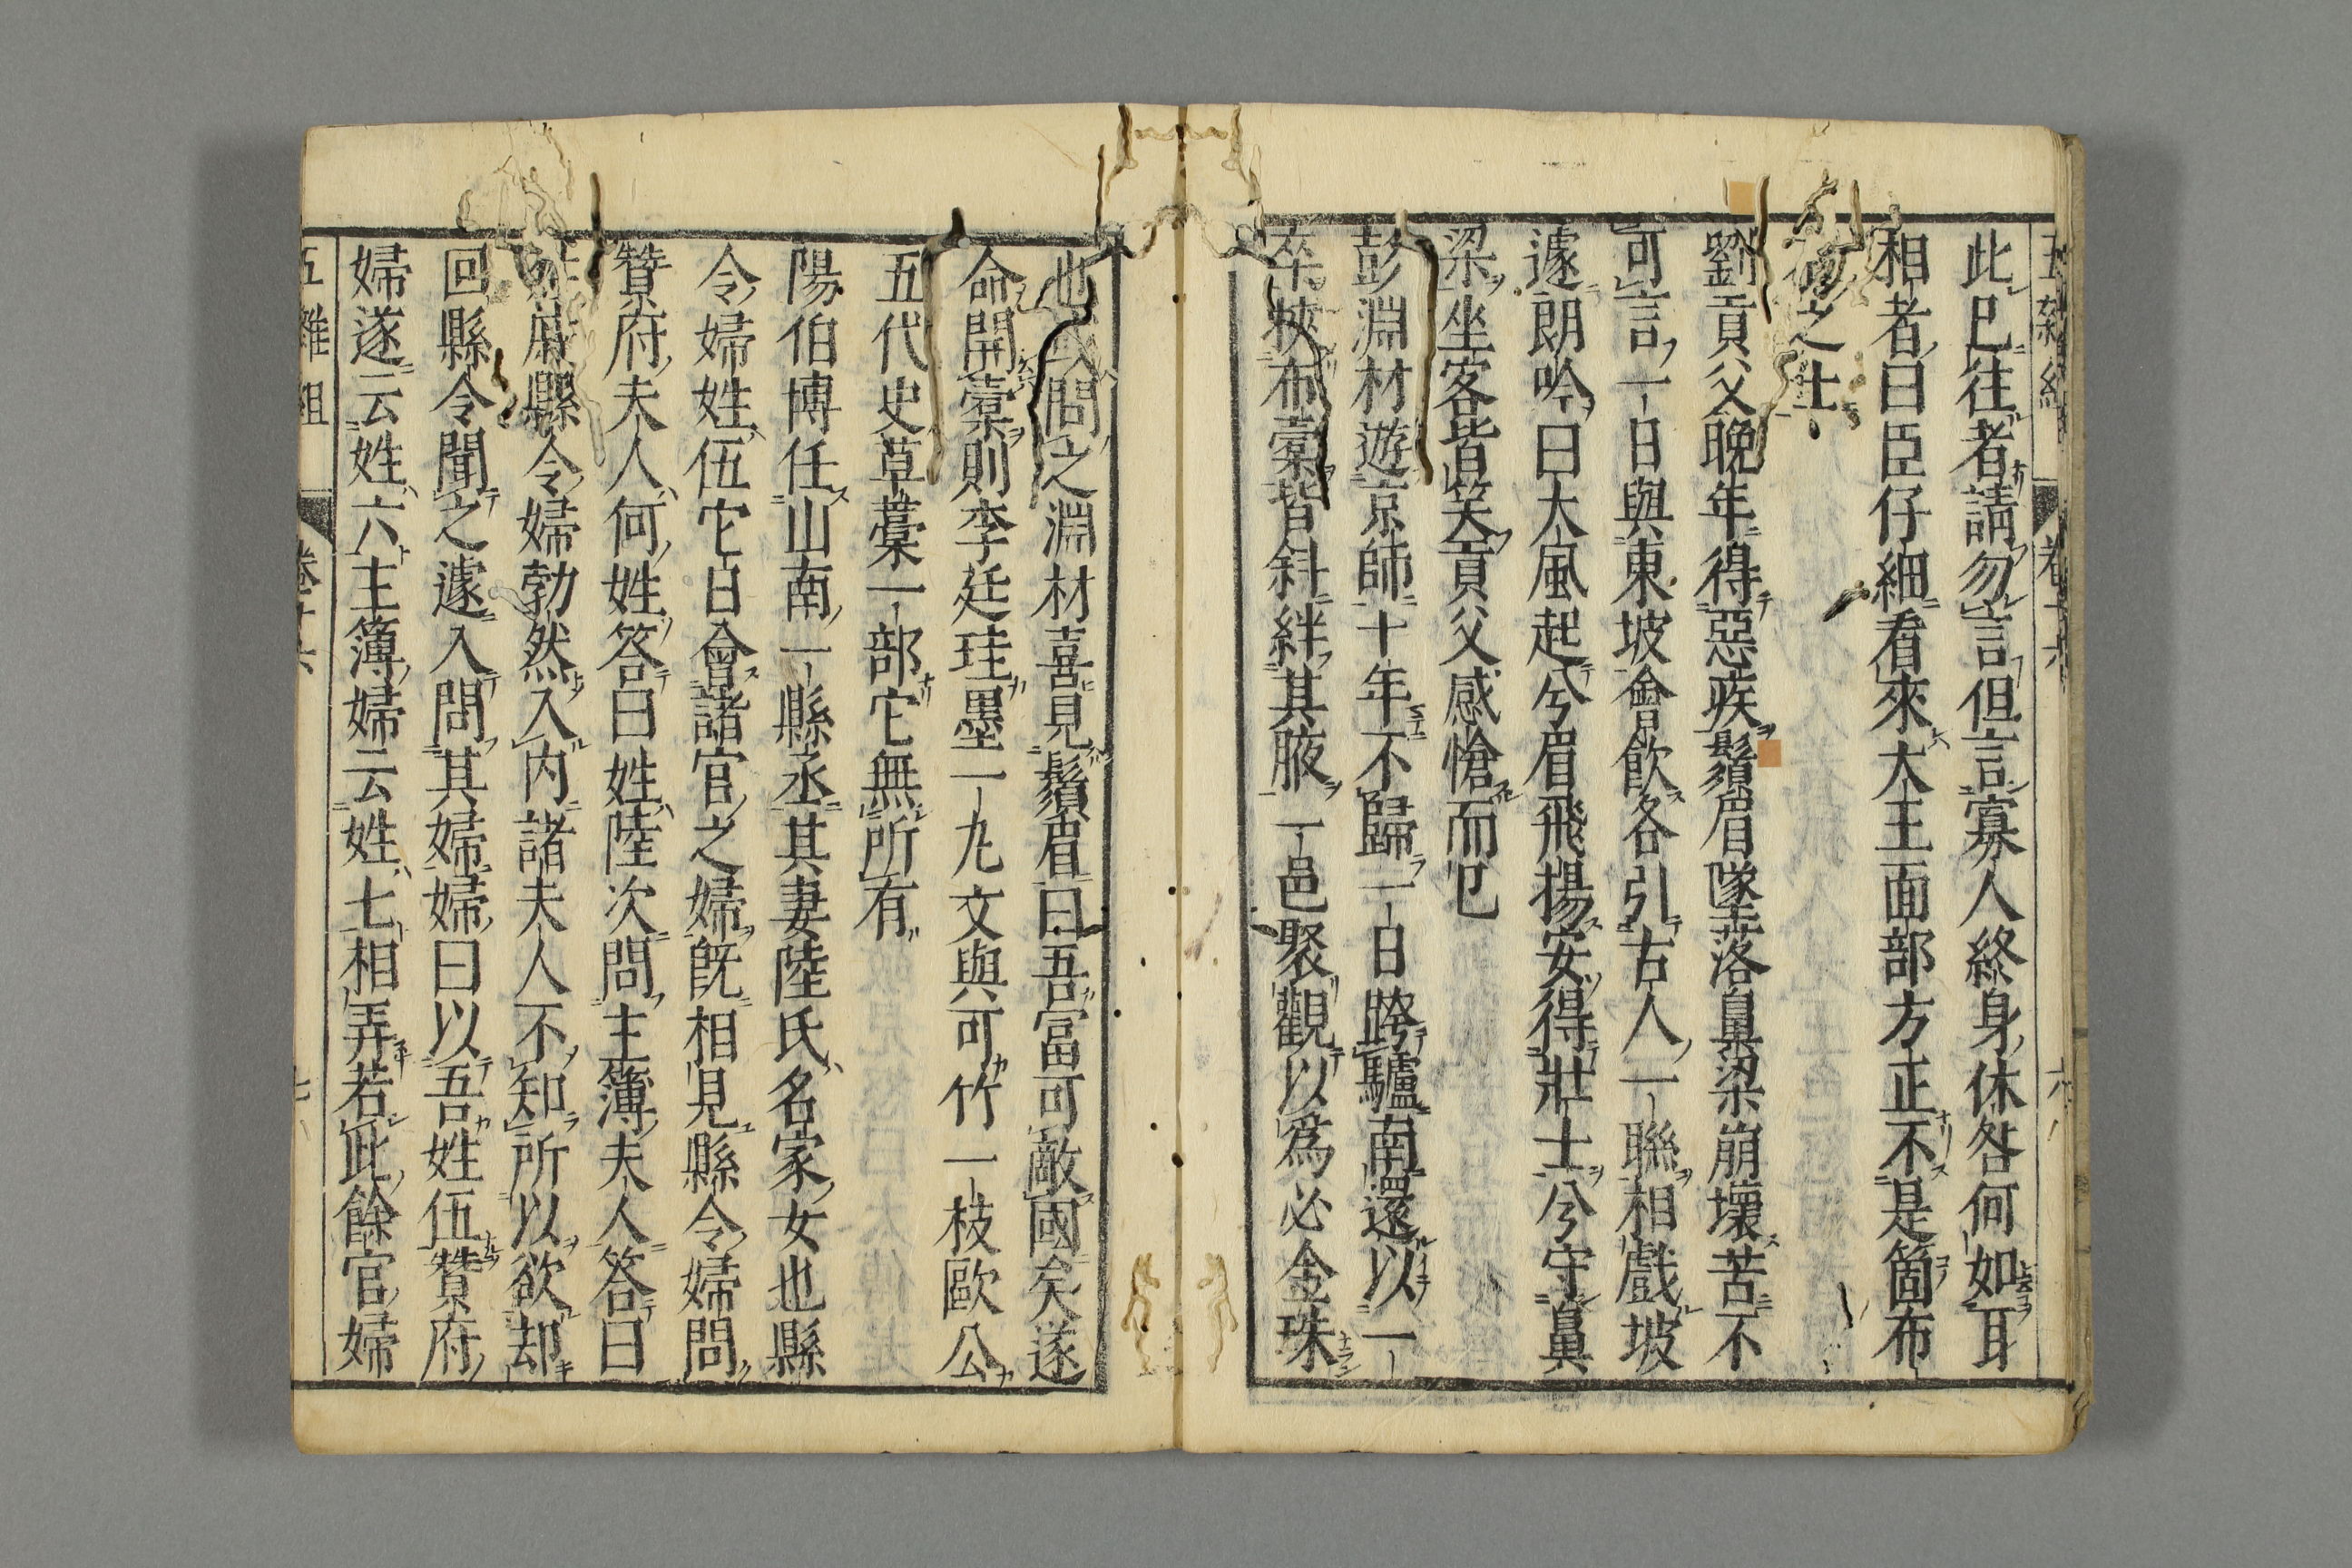 此已往者請勿言但言寡人終身休咎何如耳
相者曰臣仔細看來大王面部方正不是箇布
之士
劉貢父晚年得惡疾鬚眉墜落鼻梁崩壞苦不
可言一日與東坡會飲各引古人一聯相戲坡
遽朗吟曰大風起兮眉飛揚安得壯士兮守鼻
梁坐客皆笑貢父感愴而已
彭淵材遊京師十年不歸一日跨驢南還以一
卒挾布橐皆斜絆其腋一邑聚觀以爲必金珠
也或問之淵材喜見鬚眉曰吾富可敵國矣遂
命開橐則李廷珪墨一丸文與可竹一枝歐公
五代史草藁一部它無所有
陽伯博任山南一縣丞其妻陸氏名家女也縣
令婦姓伍它日會諸官之婦既相見縣令婦問
贊府夫人何姓答曰姓陸次問主簿夫人答曰
姓戚縣令婦勃然入內諸夫人不知所以欲却
回縣令聞之遽入問其婦婦曰以吾姓伍贊府
婦遂云姓六主簿婦云姓七相弄若此餘官婦
五雜組
卷十六